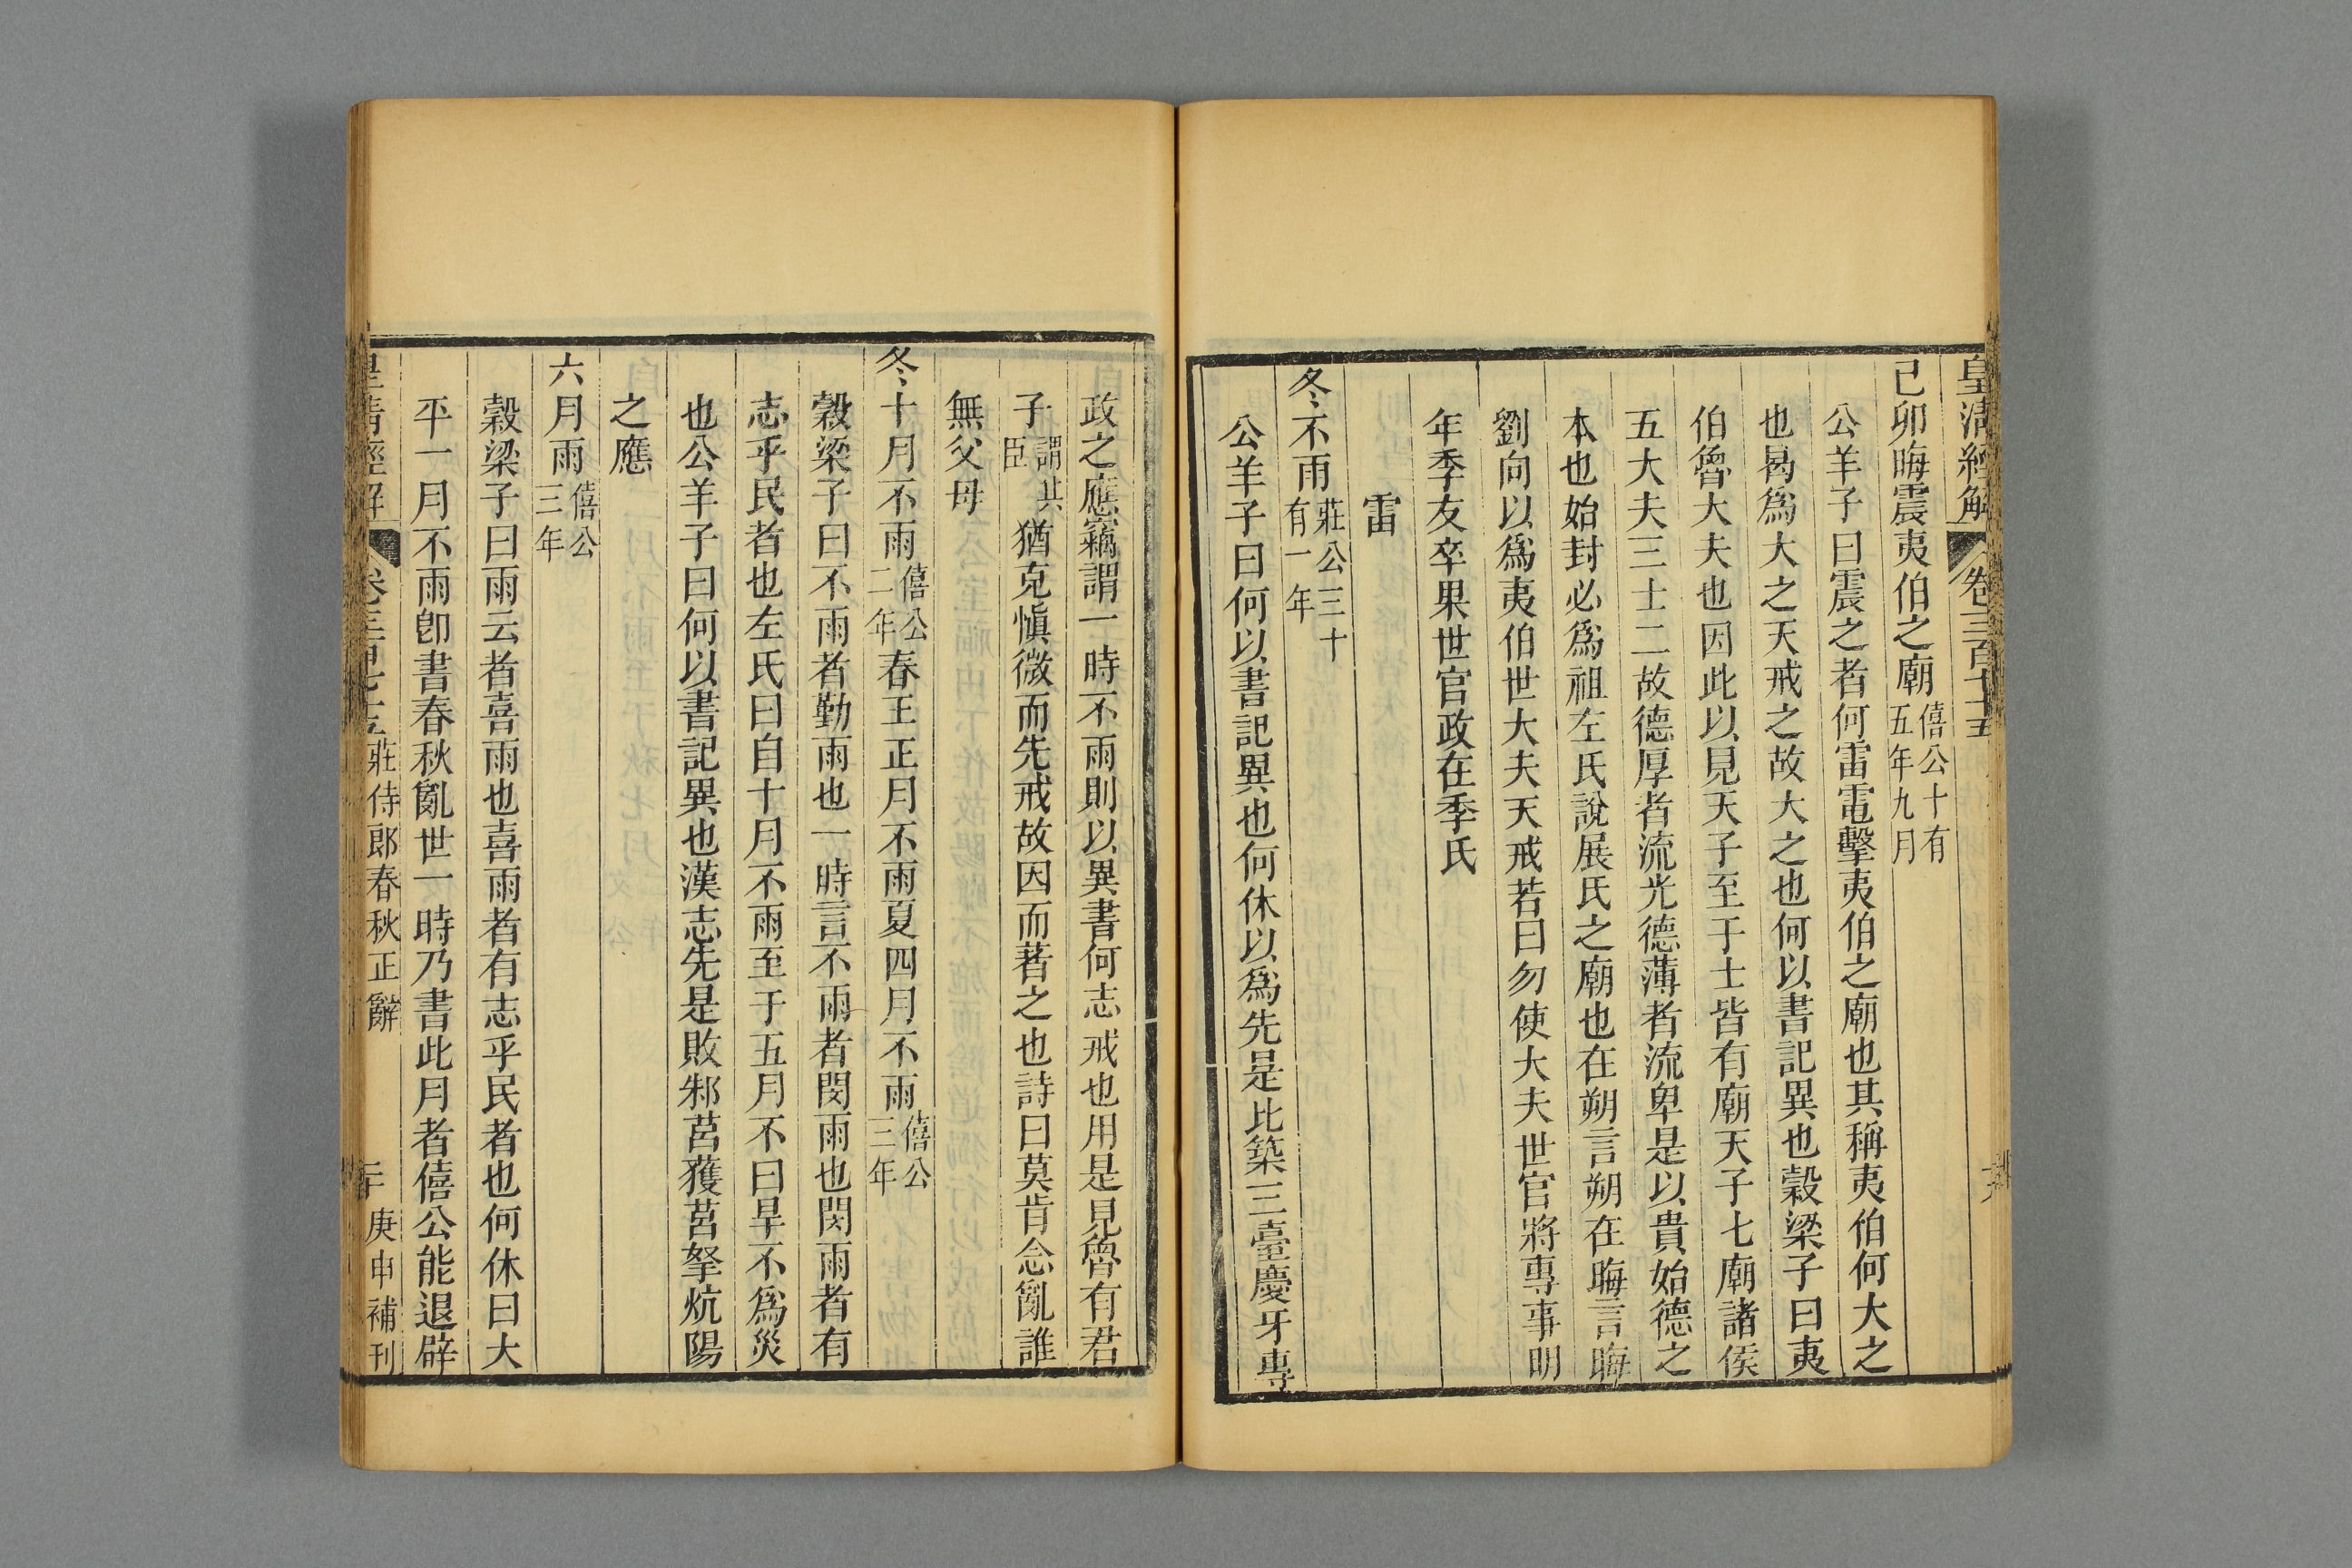 皇清經解 卷三百七十五
己卯晦震夷伯之廟僖公十有五年九月
公羊子曰震之者何雷電擊夷伯之廟也其稱夷伯何大之
也曷爲大之天戒之故大之也何以書記異也穀梁子曰夷
伯魯大夫也因此以見天子至于士皆有廟天子七廟諸侯
五大夫三士二故德厚者流光德薄者流卑是以貴始德之
本也始封必爲祖左氏說展氏之廟也在朔言朔在晦言晦
劉向以爲夷伯世大夫天戒若曰勿使大夫世官將專事明
年季友卒果世官政在季氏
雷
冬不雨莊公三十有一年
公羊子曰何以書記異也何休以爲先是比築三臺慶牙專
政之應竊謂一時不雨則以異書何志戒也用是見魯有君
子謂其臣猶克愼微而先戒故因而著之也詩曰莫肯念亂誰
無父母
冬十月不雨僖公二年春王正月不雨夏四月不雨僖公三年
穀梁子曰不雨者勤雨也一時言不雨者閔雨也閔雨者有
志乎民者也左氏曰自十月不雨至于五月不曰旱不爲災
也公羊子曰何以書記異也漢志先是敗邾莒獲莒挐炕陽
之應
六月雨僖公三年
穀梁子曰雨云者喜雨也喜雨者有志乎民者也何休曰大
平一月不雨卽書春秋亂世一時乃書此月者僖公能退辟
皇清經解 卷三百七十五 莊侍郎春秋正辭 庚申補刊